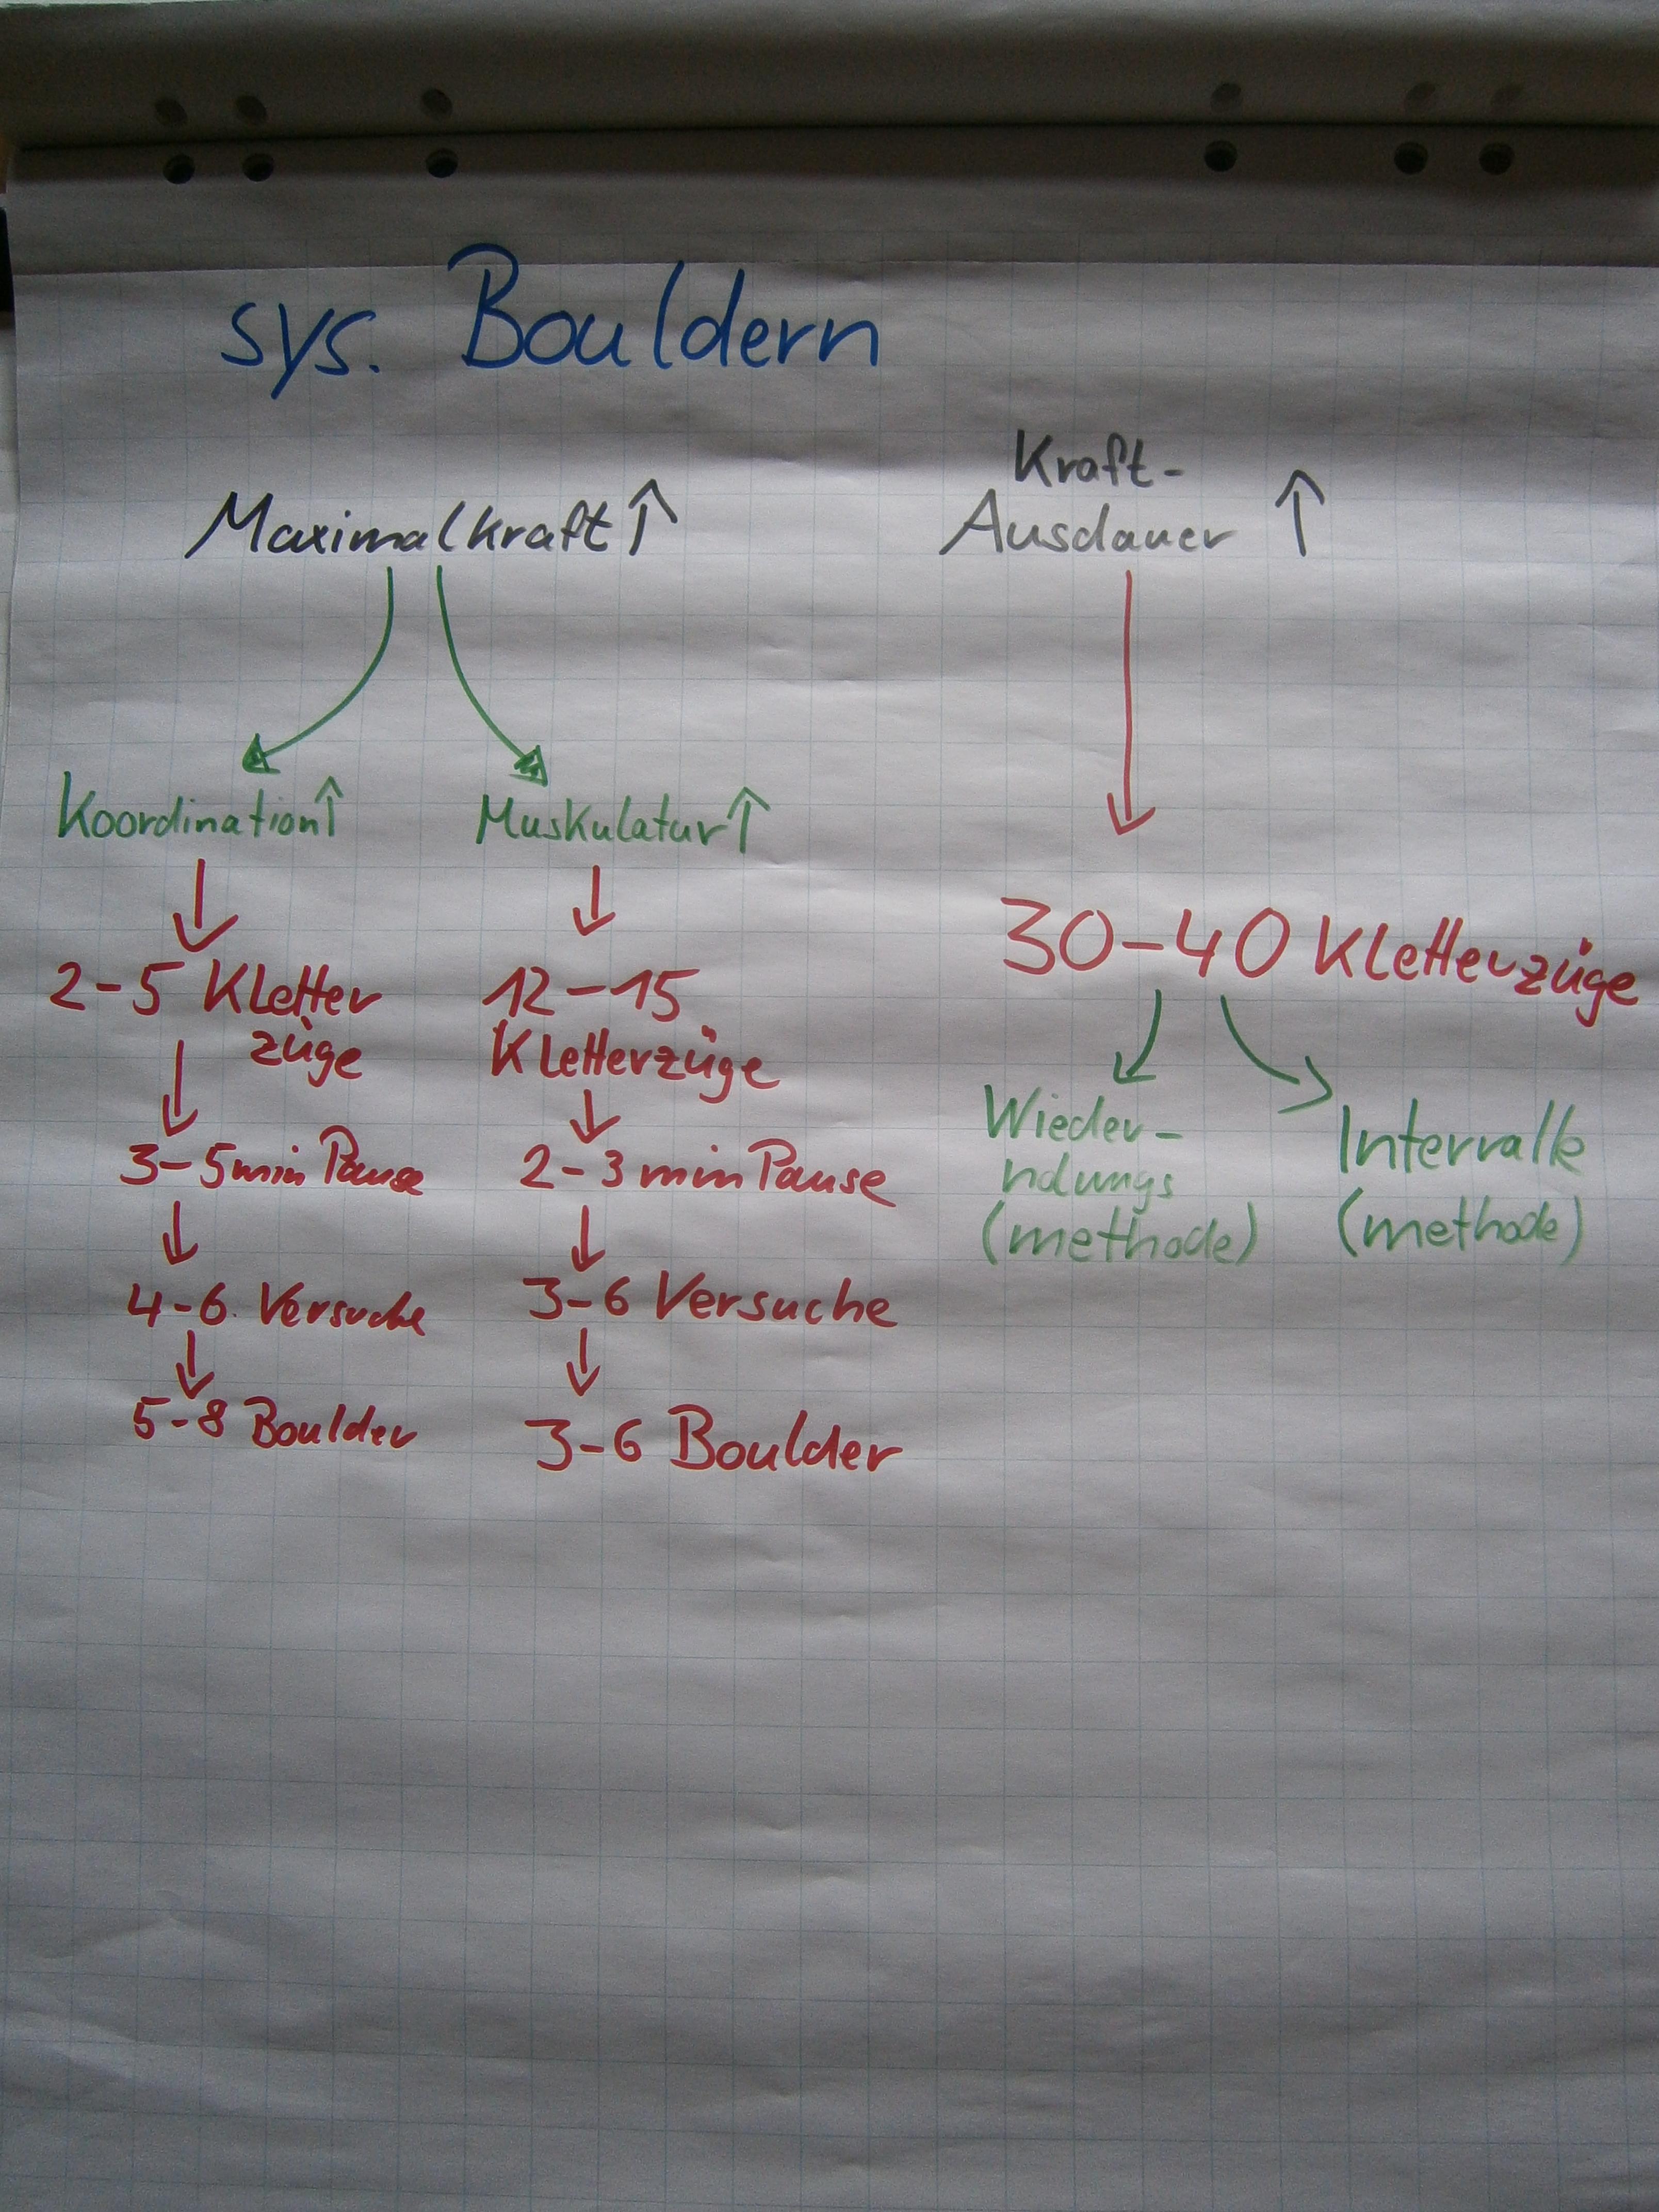 sys. Bouldern
Maximalkraft↑
Koordination↑
2-5 Kletter
züge
3-5min Pause
4-6. Versuche
5-8 Boulder
Muskulatur↑
12-15
Kletterzüge
2-3 min Pause
3-6 Versuche
3-6 Boulder
Kraft-
Ausdauer ↑
30-40 Kletterzüge
Wieder-
(methode)
Intervalle
(methode)